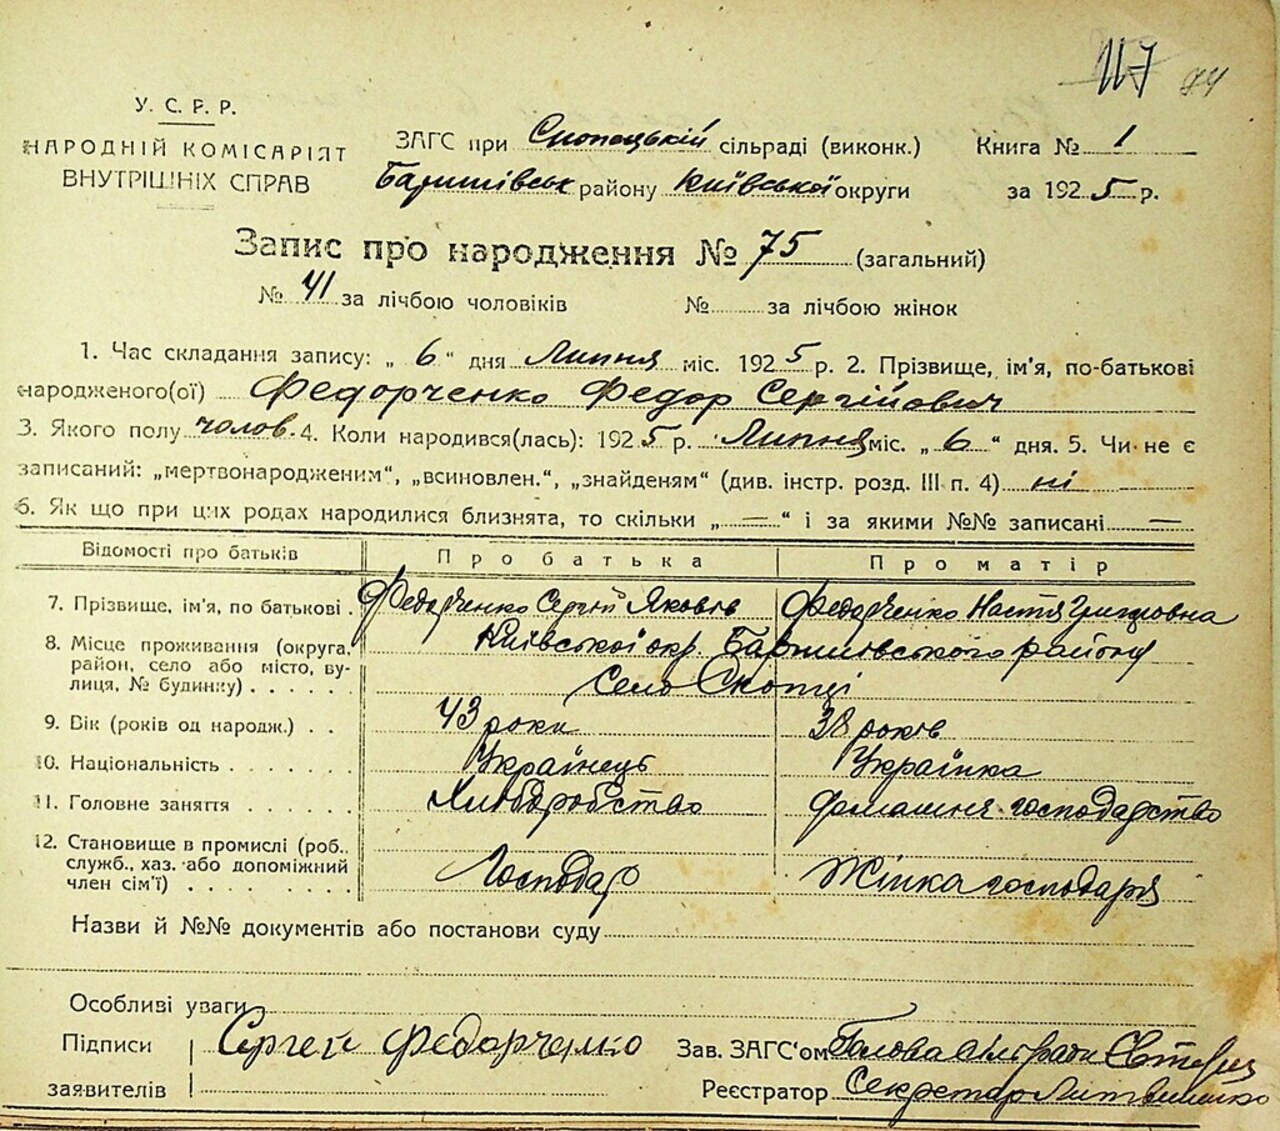 117 74
У. С. Р. Р.
НАРОДНІЙ КОМІСАРІЯТ
ВНУТРІШНІХ СПРАВ
ЗАГС при Скопецькій сільраді (виконк.) Книга № 1
Баришівськ району Київської округи за 1925 р.
Запис про народження № 75 (загальний)
№ 41 за лічбою чоловіків № за лічбою жінок
1. Час складання запису: „ 6 “ дня Липня міс. 1925 р. 2. Прізвище, ім'я, по-батькові
народженого(ої) Федорченко Федор Сергійович
3. Якого полу чолов. 4. Коли народився(лась): 1925 р. Липня міс. „ 6 “ дня. 5. Чи не є
записаний: „мертвонародженим“, „всиновлен.“, „знайденям“ (див. інстр. розд. III п. 4) ні
6. Як що при цих родах народилися близнята, то скільки „ — “ і за якими №№ записані —
Відомості про батьків Про батька Про матір
7. Прізвище, ім'я, по батькові . Федорченко Сергій Яковів Федорченко Настя Григоровна
8. Місце проживання (округа, район, село або місто, вулиця, № будинку) . . . . . Київської окр. Баришівського району
Село Скопці
9. Вік (років од народж.) . . 43 роки 38 років
10. Національність . . . . . . . Українець Українка
11. Головне заняття . . . . . . Хліборобство домашнє господарство
12. Становище в промислі (роб., служб., хаз. або допоміжний член сім'ї) . . . . . . . Господар Жінка господаря
Назви й №№ документів або постанови суду
Особливі уваги
Підписи Сергей Федорченко Зав. ЗАГС'ом Голова сільради
заявителів Реєстратор Секретар Литвиненко